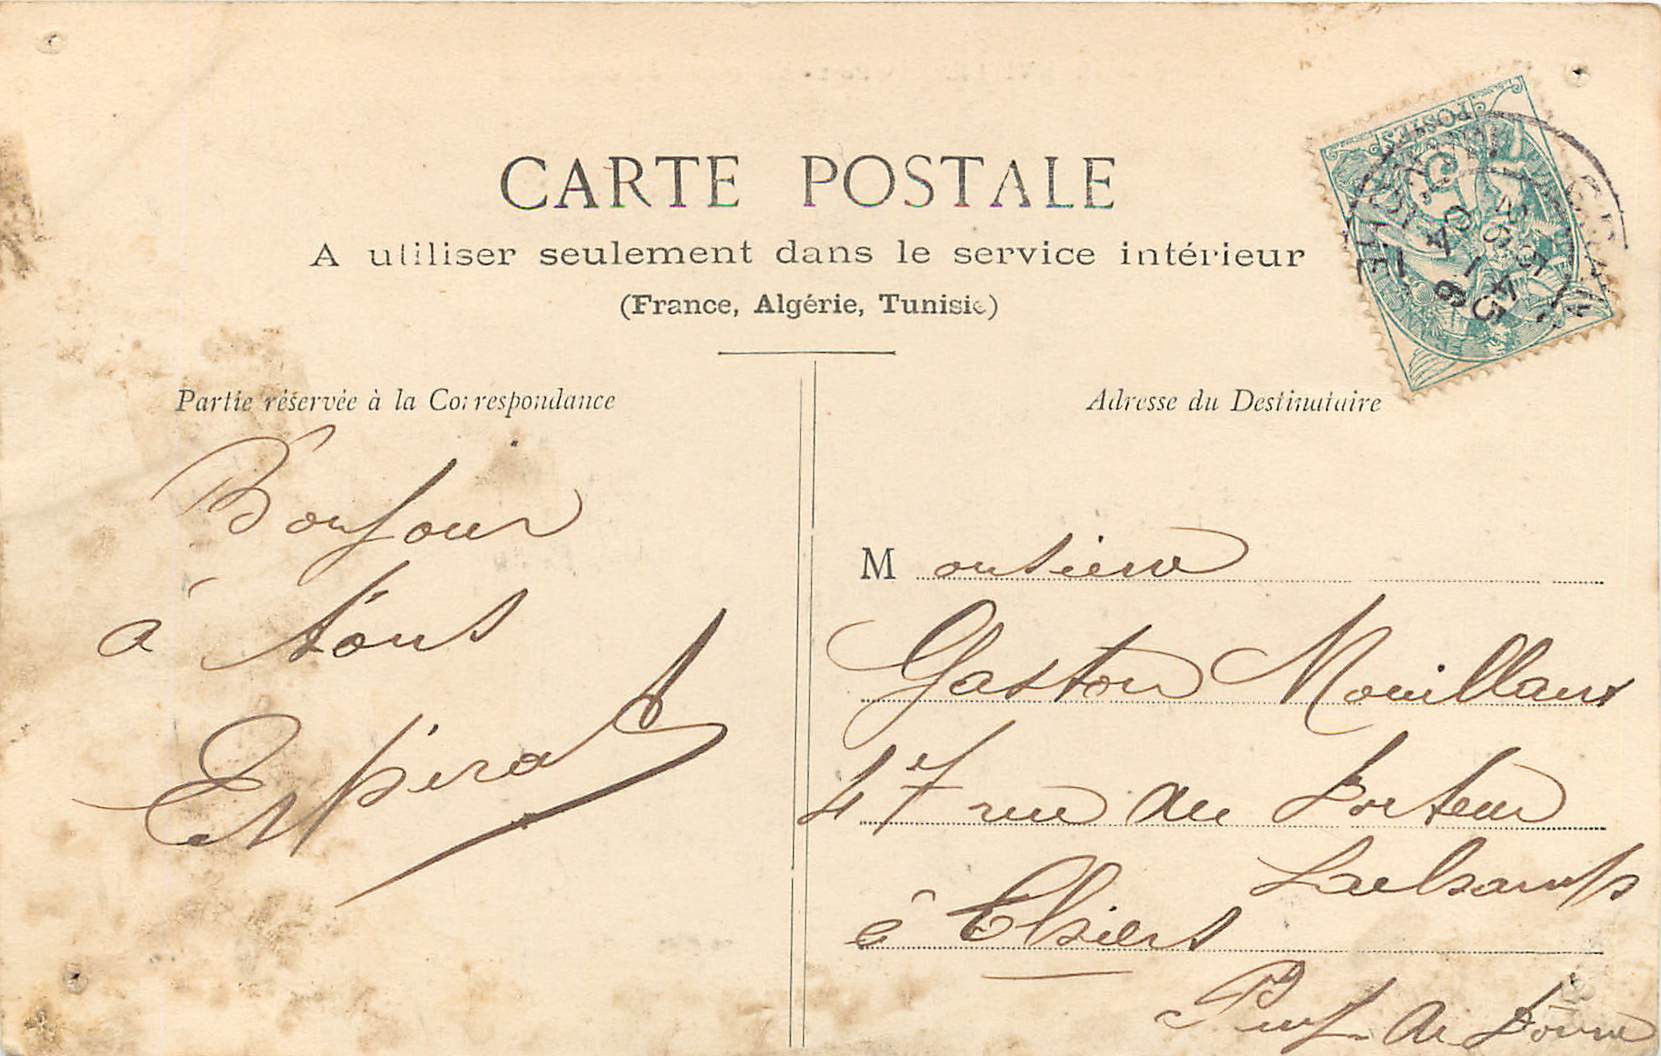 CARTE POSTALE
A utiliser seulement dans le service intérieur
(France, Algérie, Tunisie)
Partie réservée à la Correspondance
Bonjour
à tous
Adresse du Destinataire
Monsieur
Gaston
47 rue du
à Thiers
Puy de Dôme
POSTES